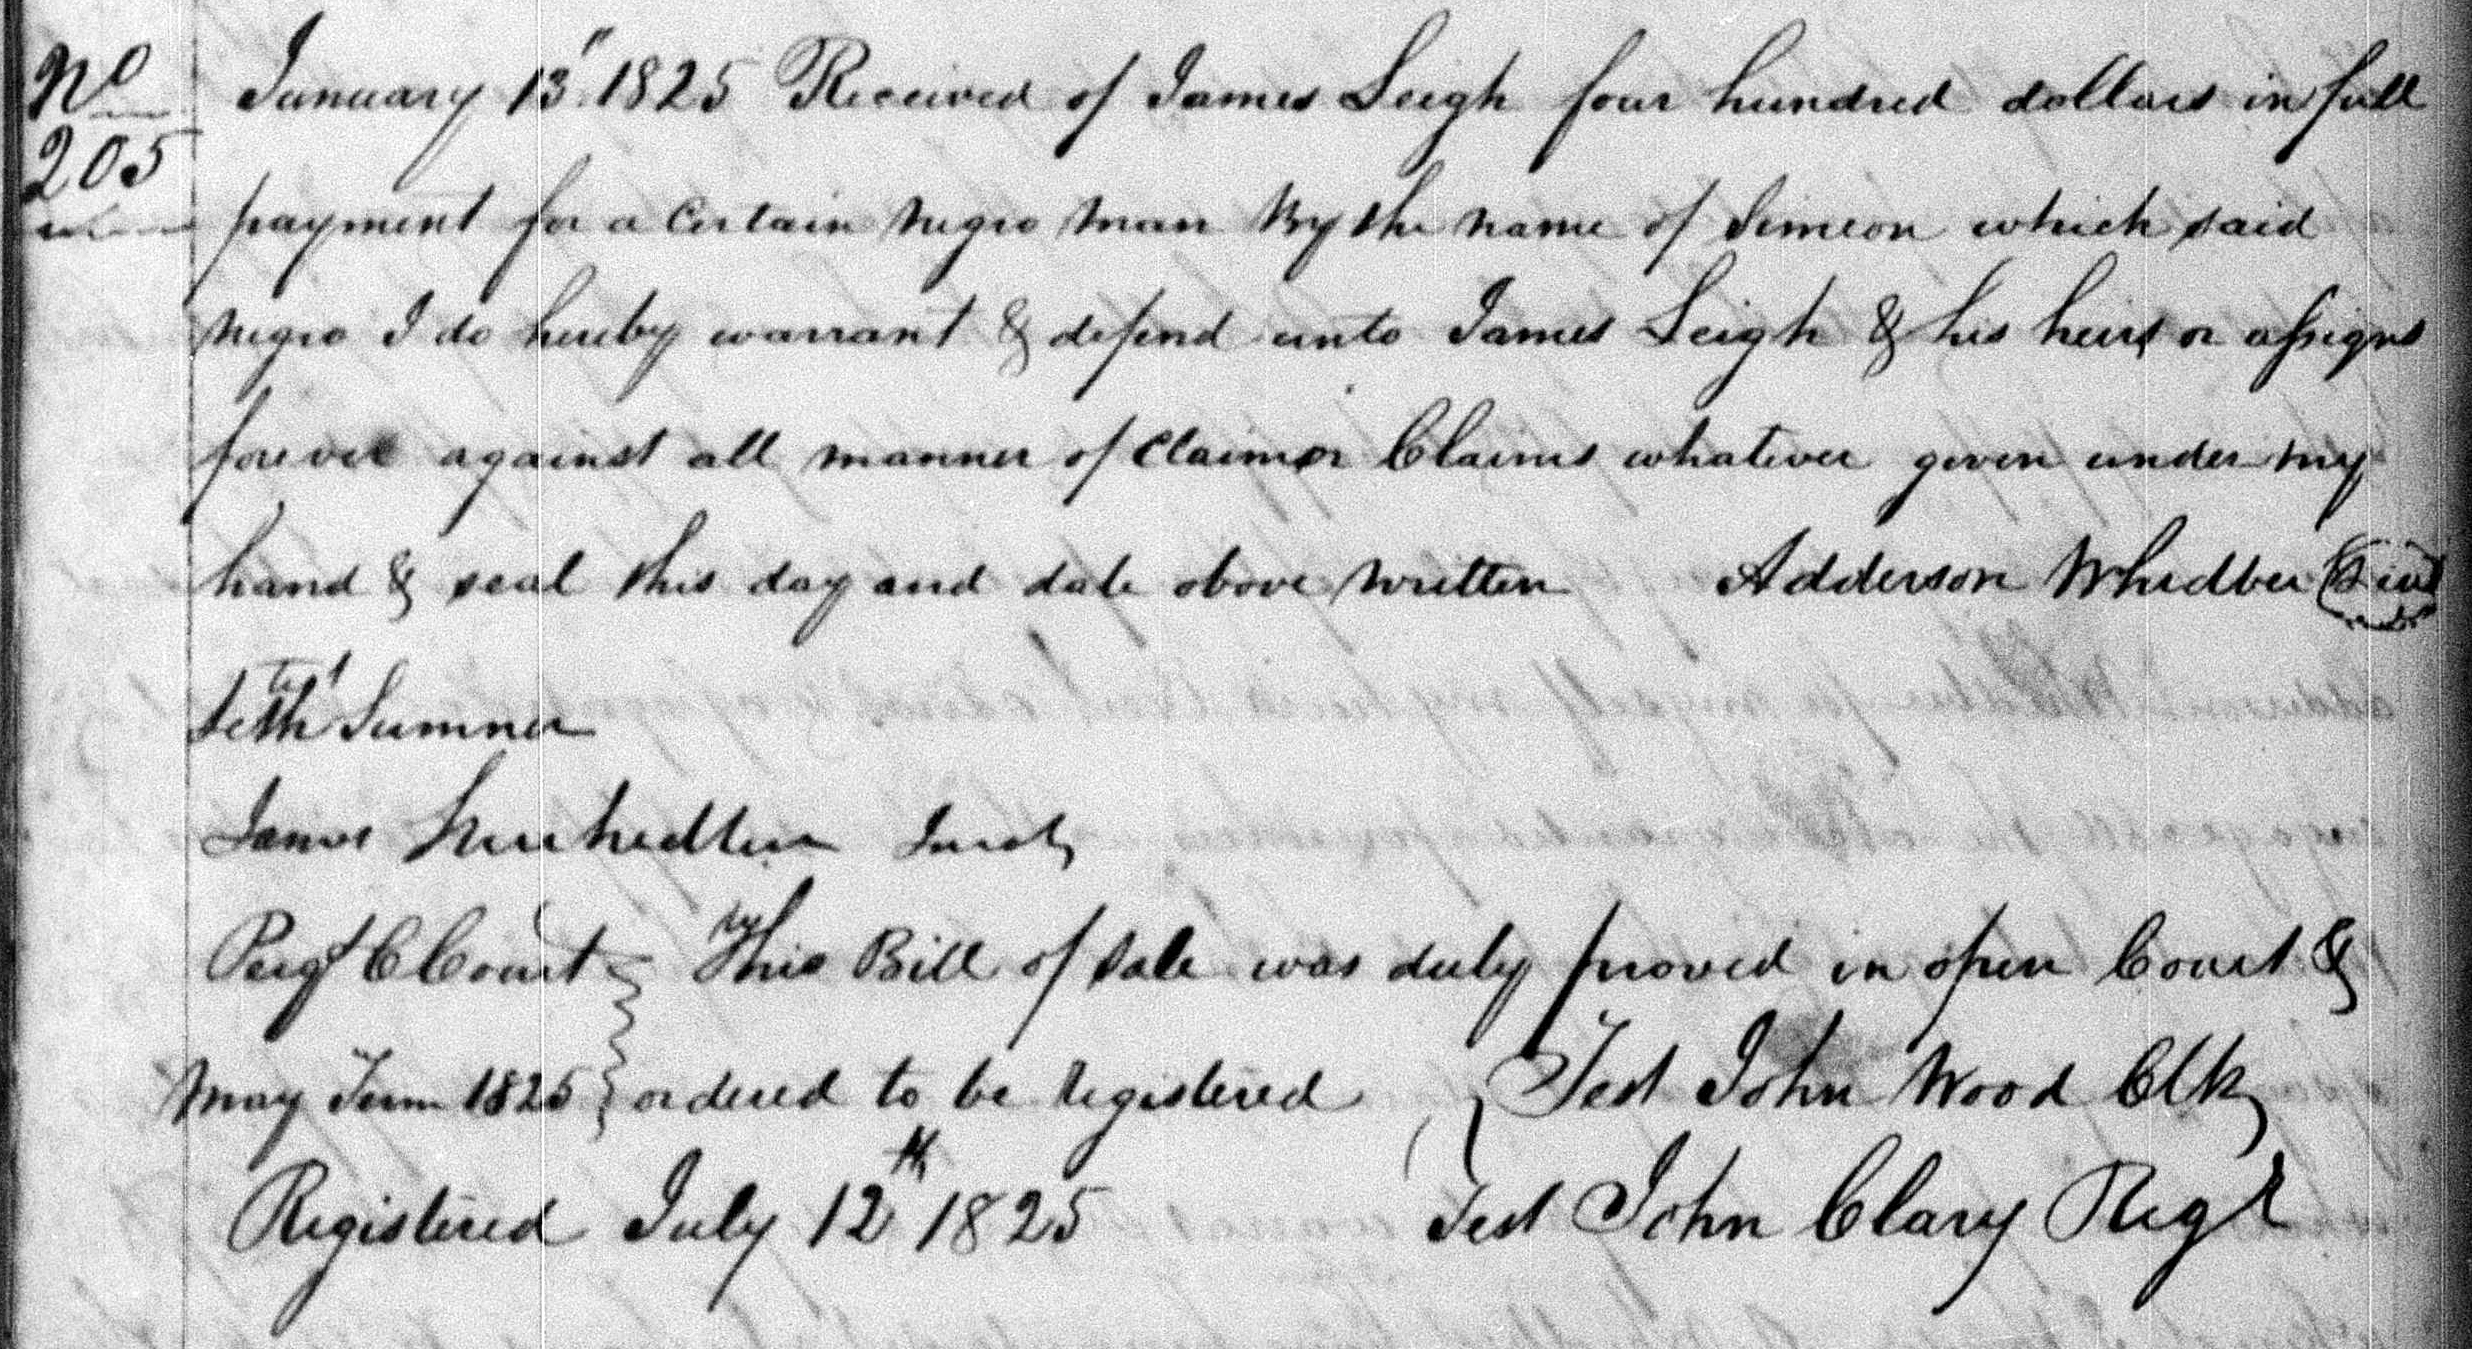 No
205
January 13" 1825 Received of James Leigh four hundred dollars in full
payment for a Certain negro man By the name of Simeon which said
negro I do hereby warrant & defend unto James Leigh & his heirs or assigns
forever against all manner of Claim or Claims whatever given under my
hand & seal this day and date above written Adderson Whidbee Seal
test
Seth Sumner
James Jurat
Perqs C Court This Bill of Sale was duly proved in open Court &
May Term 1825 ordered to be Registered Test John Wood Clk
Registered July 12th 1825 Test John Clary Regr